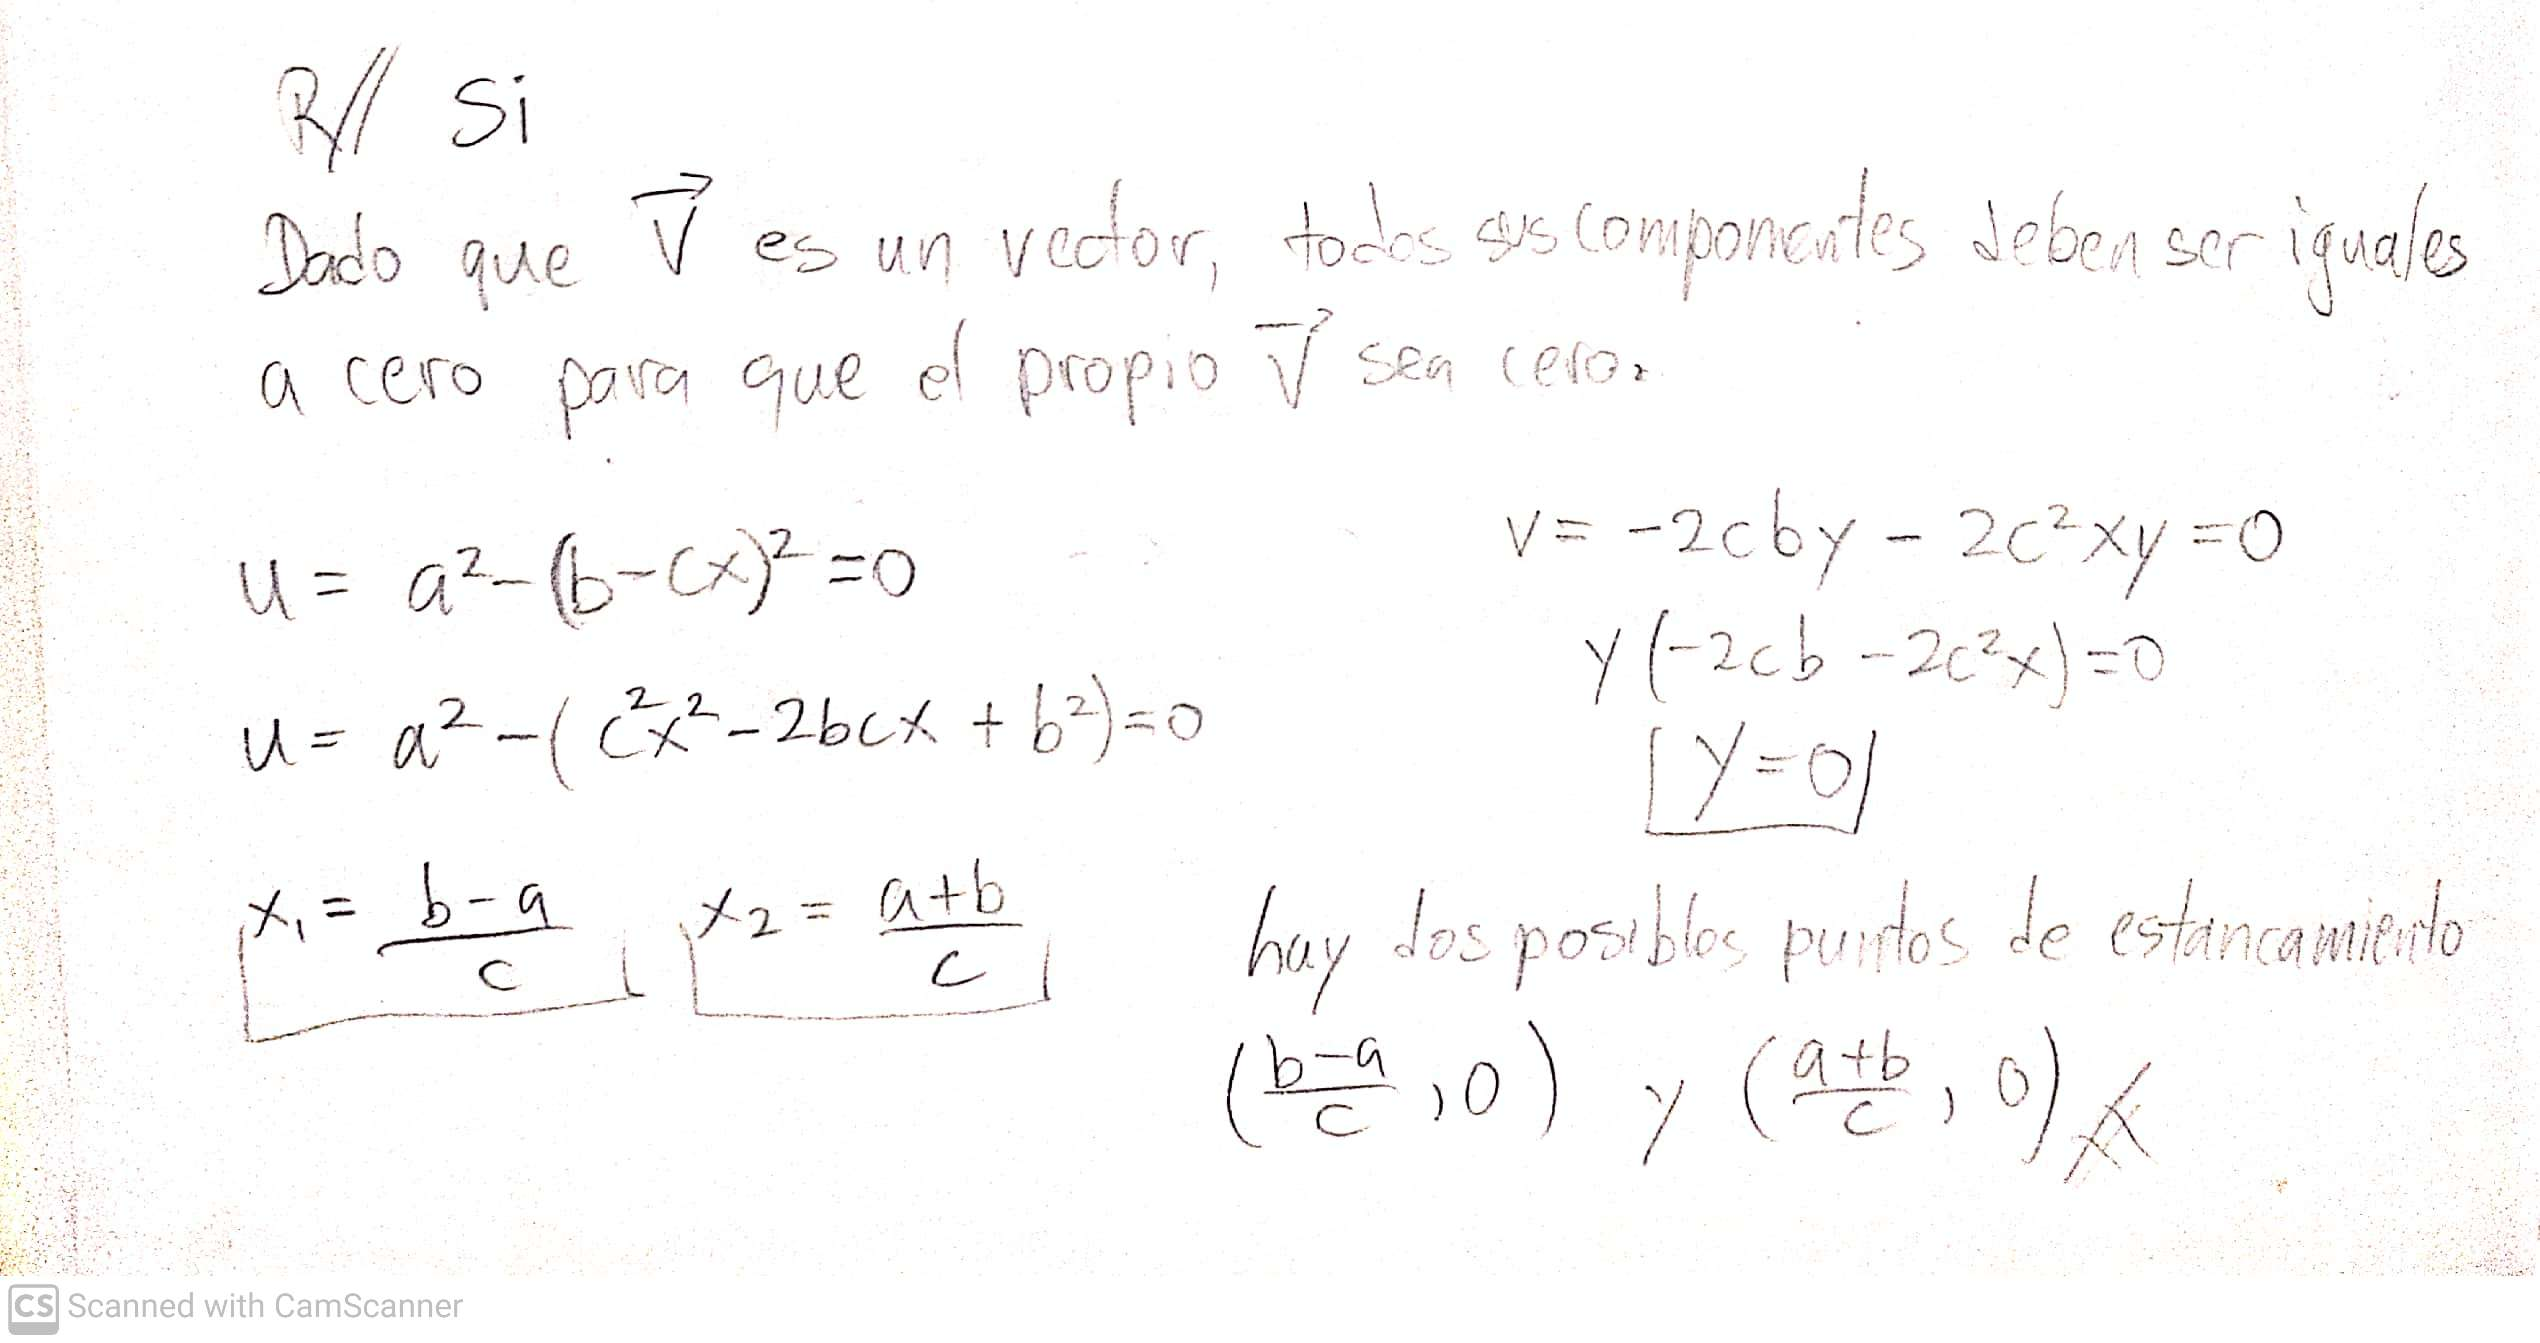 R// Si
Dado que V⃗ es un vector, todos sus componentes deben ser iguales
a cero para que el propio V⃗ sea cero.
u = a² - (b - cx)² = 0
u = a² - (c²x² - 2bcx + b²) = 0
x₁ = (b-a)/c x₂ = (a+b)/c
v = -2cby - 2c²xy = 0
y(-2cb - 2c²x) = 0
y = 0
hay dos posibles puntos de estancamiento
((b-a)/c, 0) y ((a+b)/c, 0)
CS Scanned with CamScanner